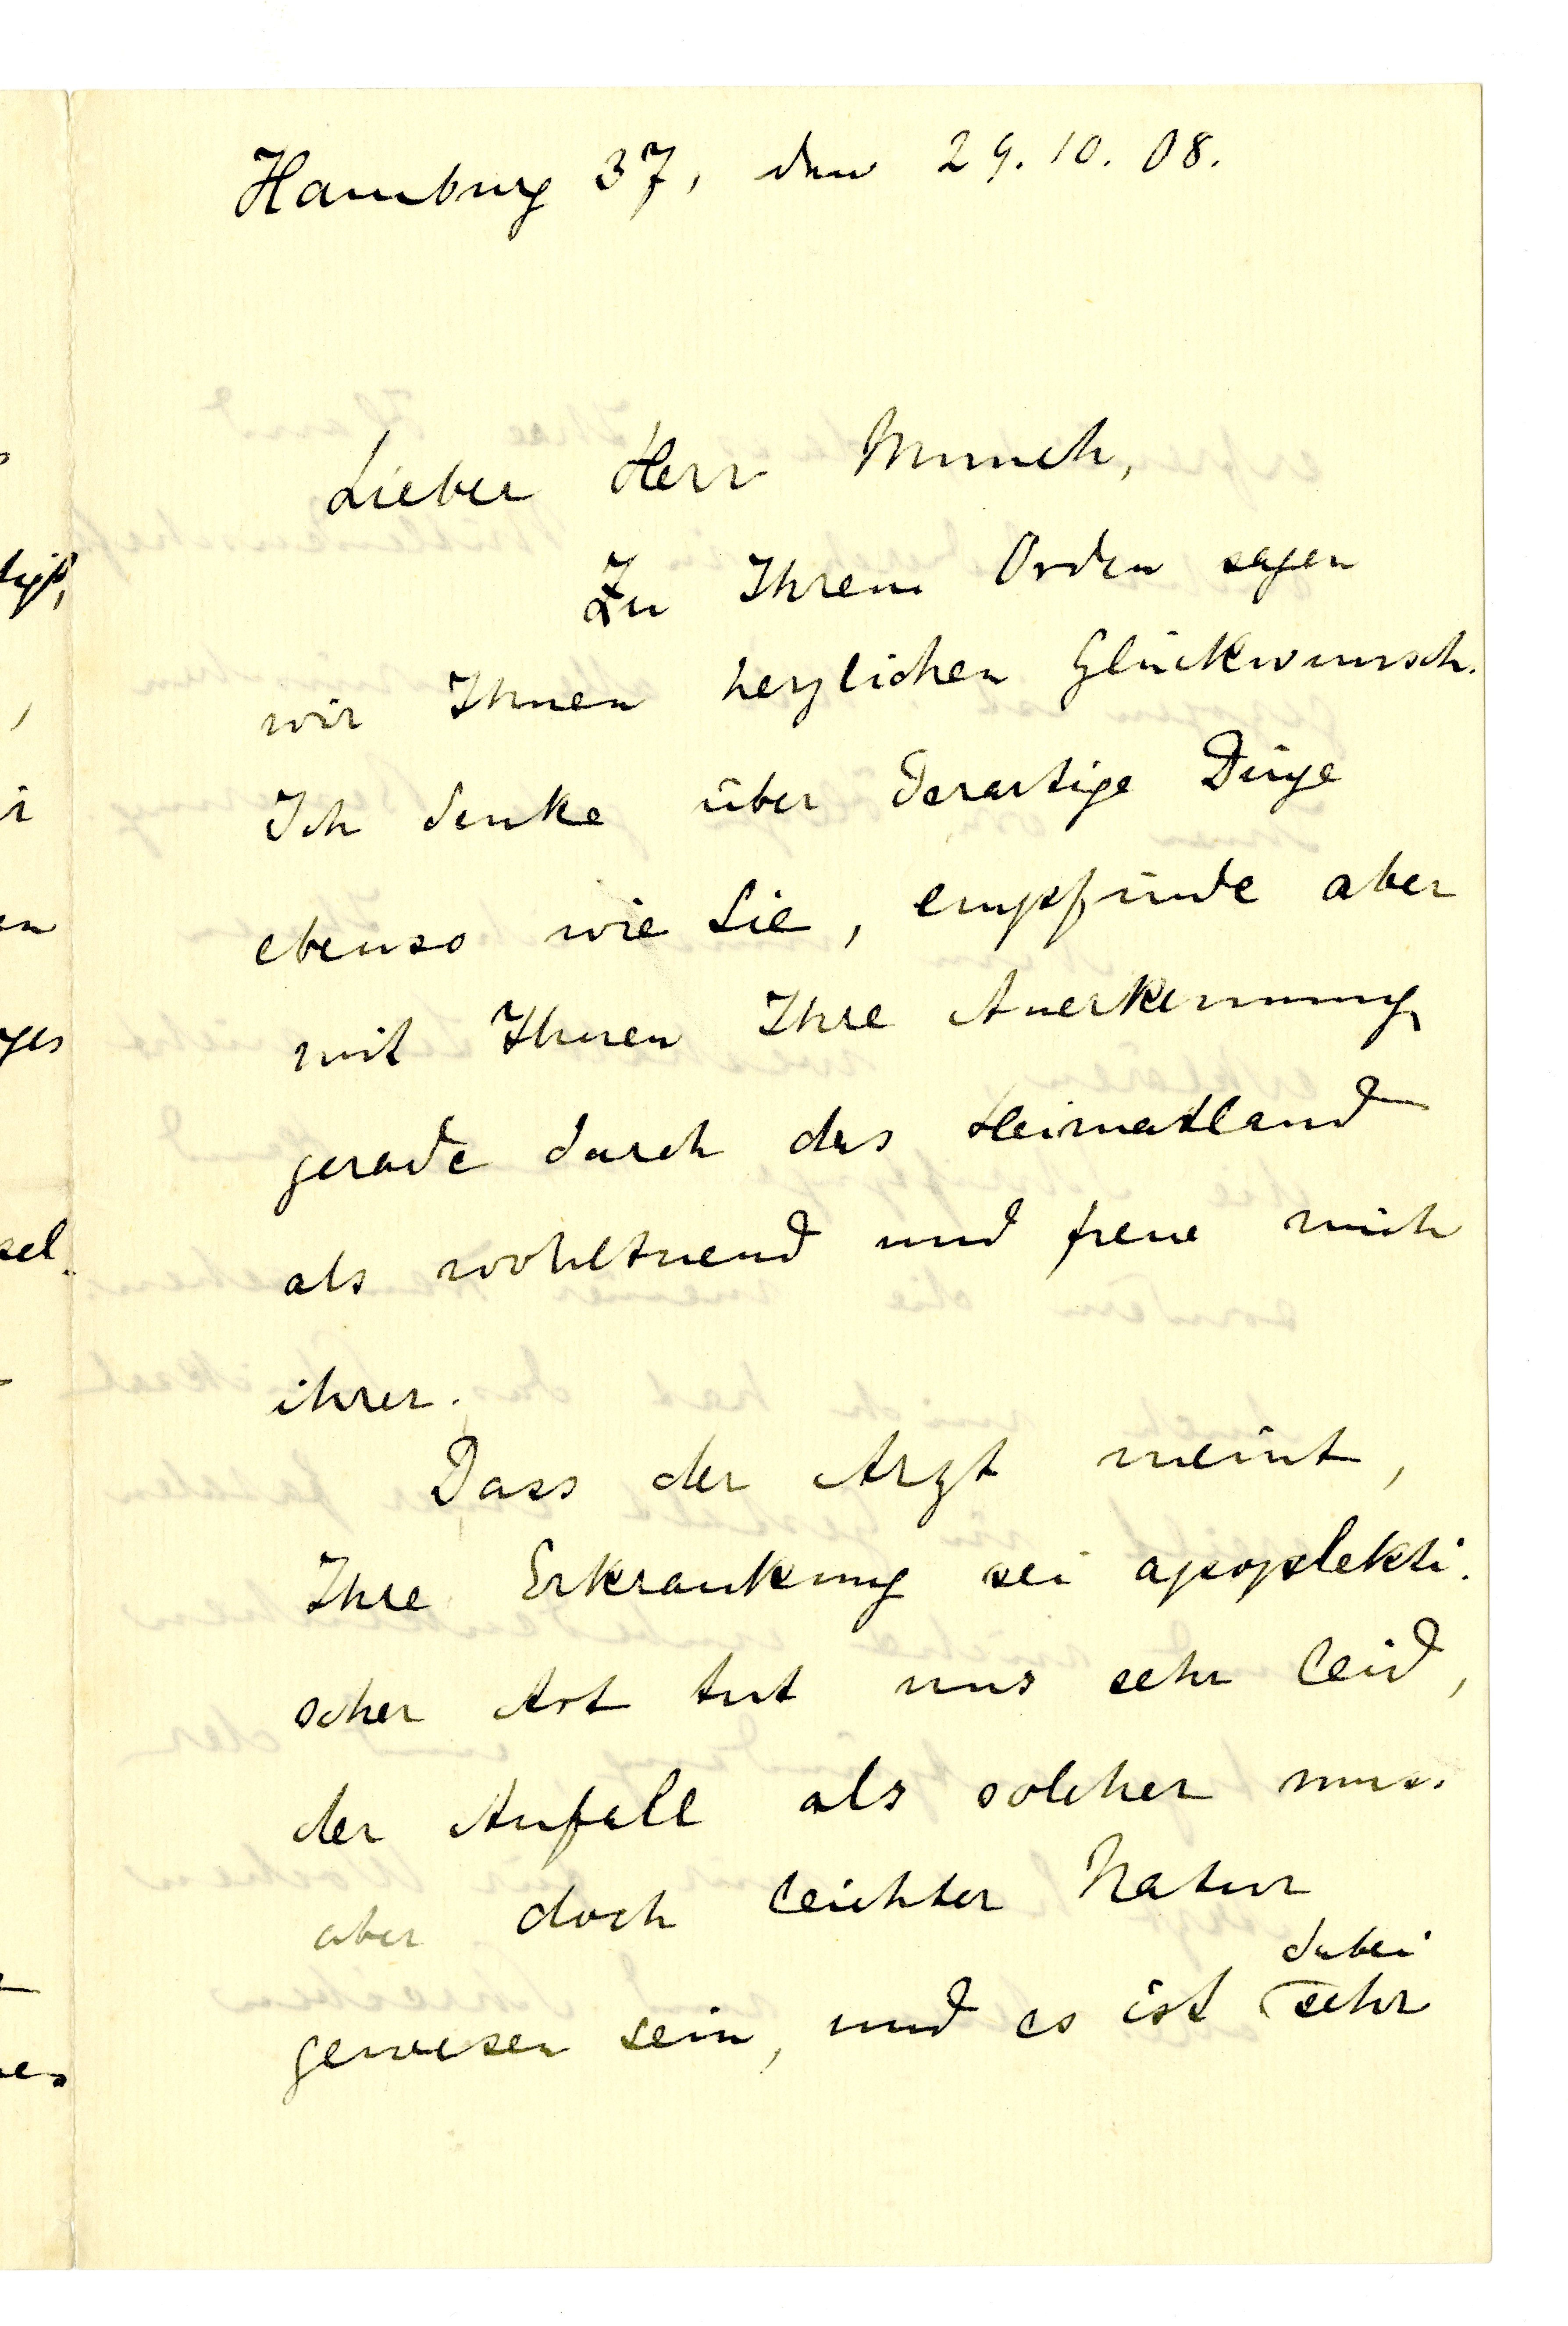 Hamburg 37, den 29. 10. 08.
Lieber Herr Munch,
Zu Ihrem Orden sagen
wir Ihnen herzlichen Glückwunsch.
Ich denke über derartige Dinge
ebenso wie Sie, empfinde aber
mit Ihnen Ihre Anerkennung
gerade durch das Heimatland
als wohltuend und freue mich
ihrer.
Dass der Arzt meint,
Ihre Erkrankung sei apoplekti-
scher Art tut uns sehr leid,
der Anfall als solcher muss
aber doch leichter Natur
dabei
gewesen sein, und es ist sehr